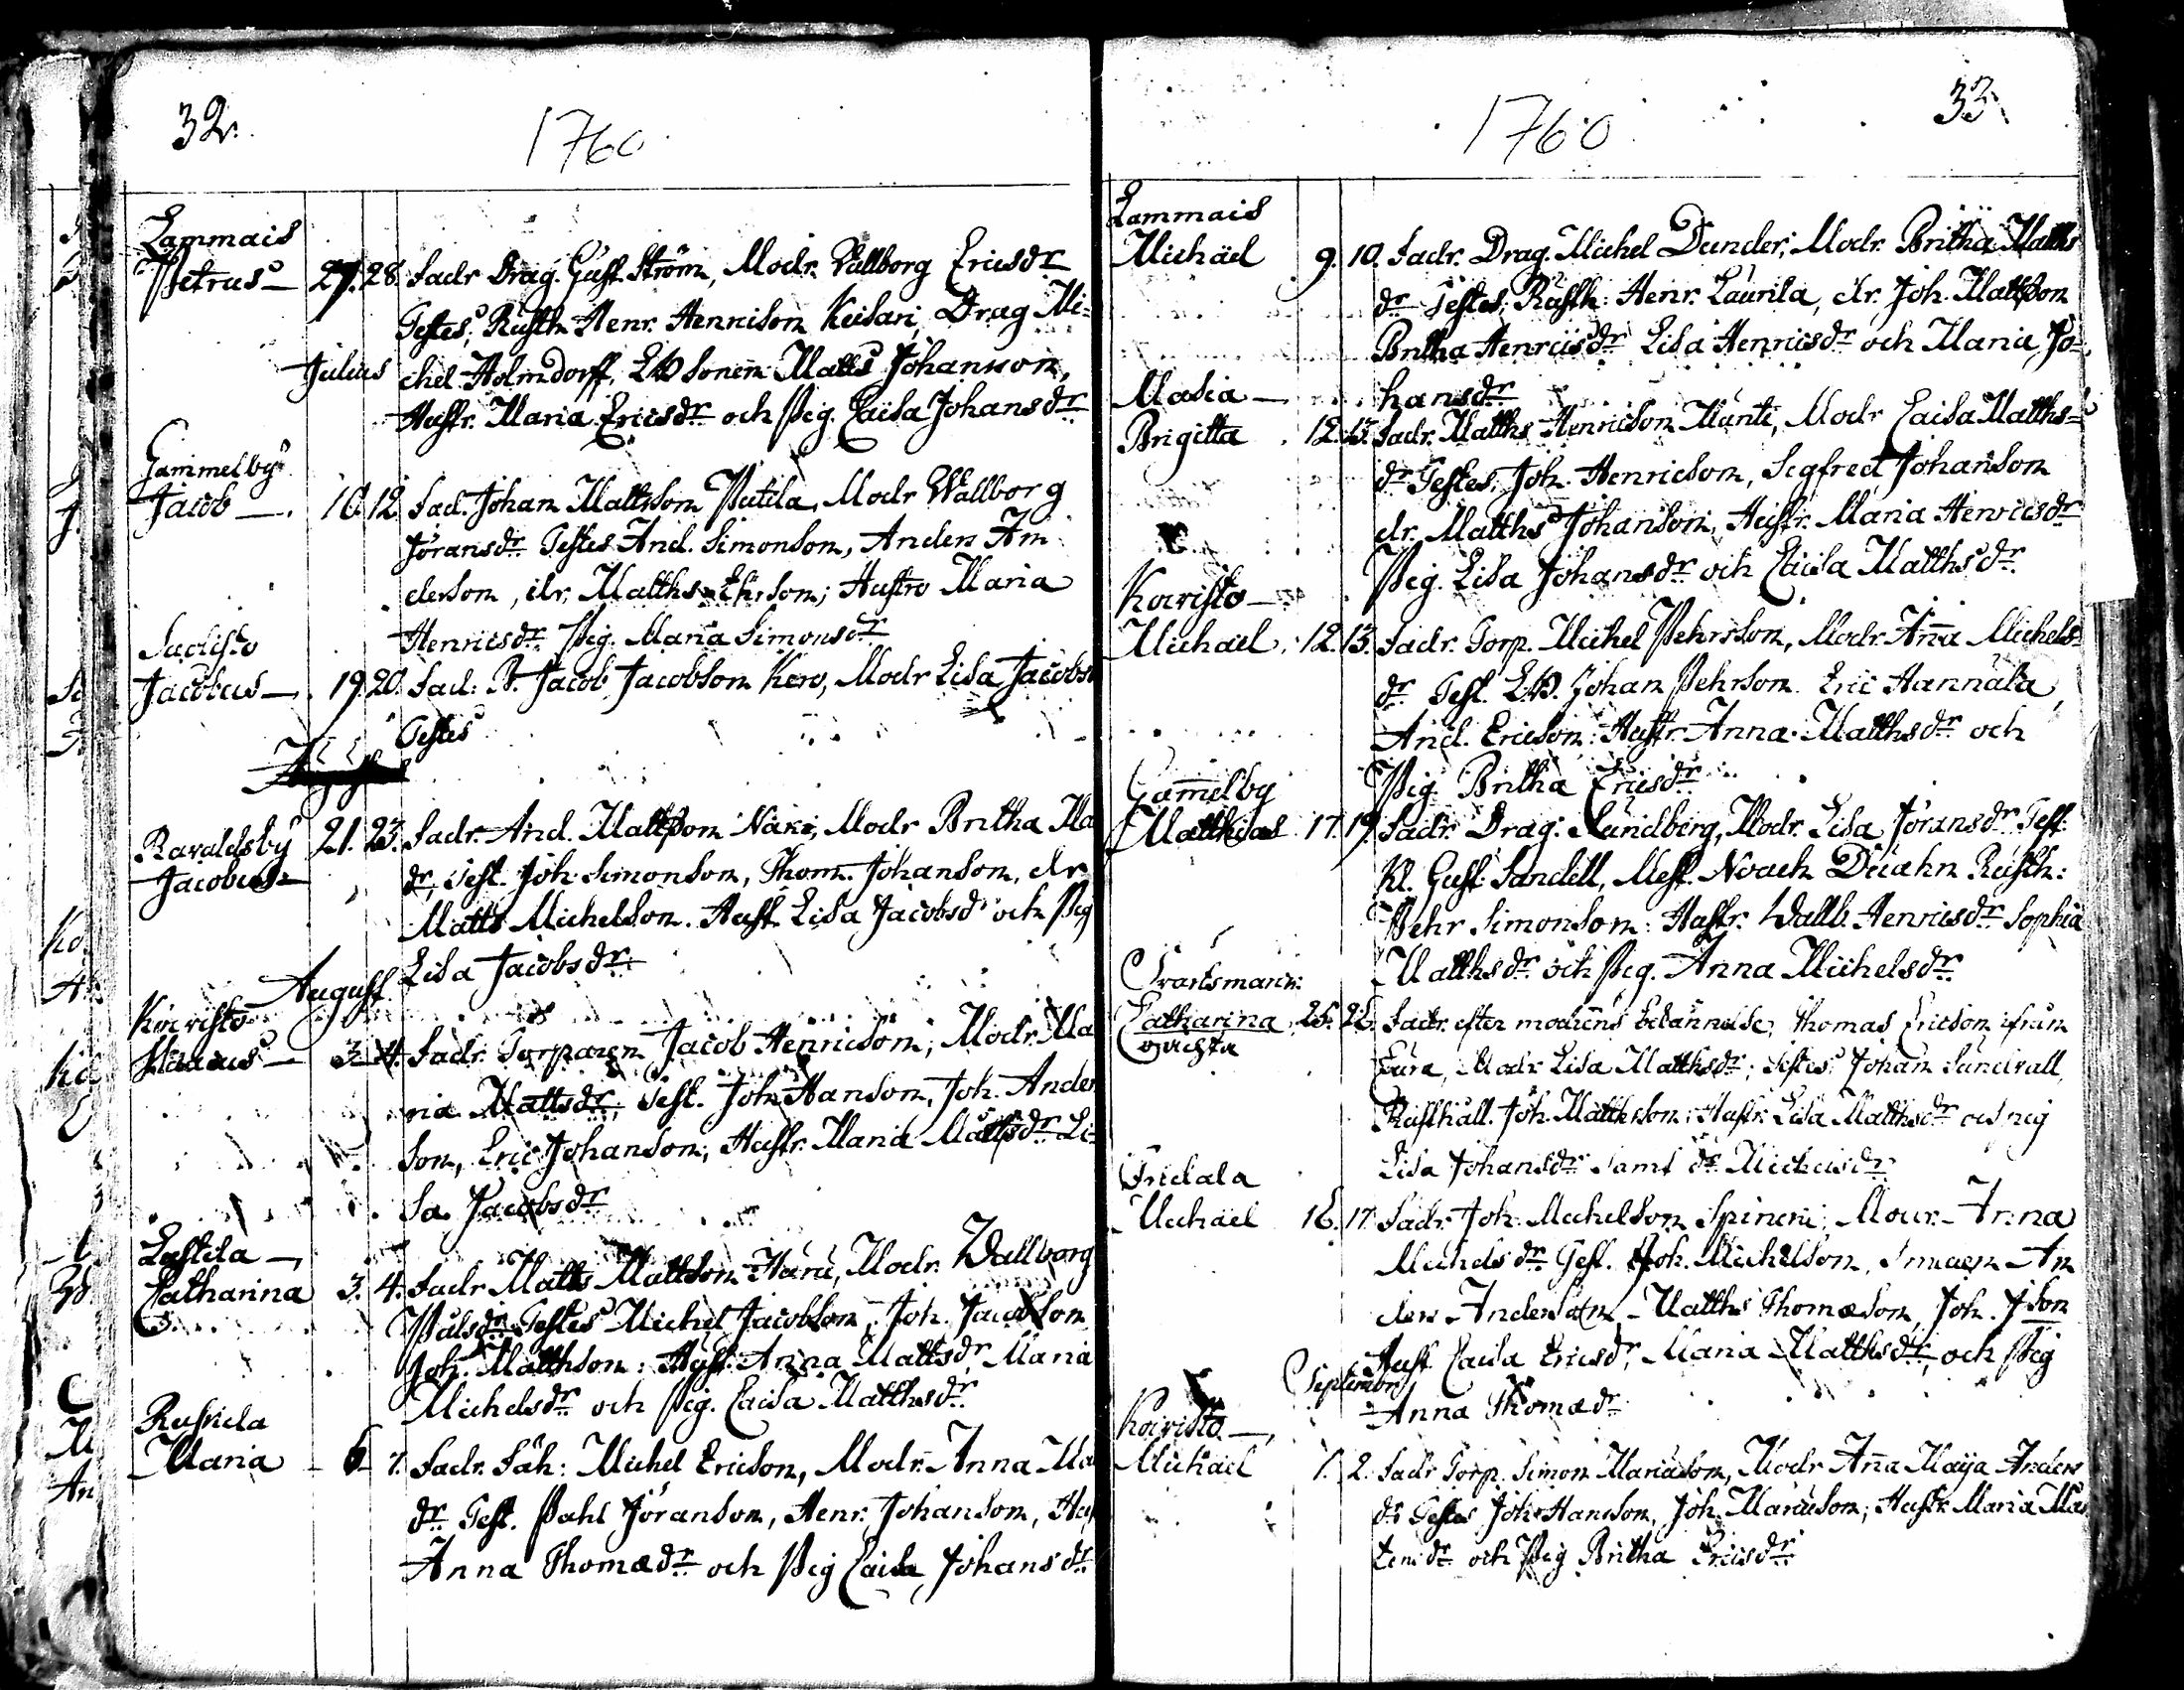 32.
1760
Lammais
Petrus — 27. 28. Fadr Drag. Gust. Ström, Modr. Wallborg Ericsdr
Testes, Rusth. Henr. Henricson Keisari, Drag Mi=
Julius
chel Holmdorff, Matts Johansson,
Hustr. Maria Ericsdr och Pig. Caisa Johansdr
Gammelby
Jacob — 10. 12. Fad. Johan Mattsson Putila, Modr Wallborg
Jöransdr Testes And. Simonson, Anders An
derson, dr. Matths Ehrson; Hustro Maria
Henricsdr Pig. Maria Simonsdr
Jacobus — 19. 20. Fad. Jacob Jacobson Kero, Modr Lisa Jacobs
Testes
Ravaldsby 21. 23. Fadr. And. Mattsson Näki, Modr Britha Ma
Jacobus —
dr, Test. Joh. Simonson, Thom. Johanson, dr
Matts Michelson. Hust Lisa Jacobsdr och Pig
Lisa Jacobsdr
August
Koivisto
3. 4. Fadr. Torparen Jacob Henricson; Modr. Ma
ria Mattsdr, Test. Joh. Hanson, Joh. Anders
son, Eric Johanson; Hustr. Maria Mattsdr Li=
sa Jacobsdr
Lastila —
Catharina 3. 4. Fadr Matts Mattson Haru, Modr. Wallborg
Pålsdr Testes Michel Jacobson, Joh. Jacobson
Joh. Matthson: Hust. Anna Mattsdr Maria
Michelsdr och Pig. Caisa Matthsdr
Maria — 6. 7. Fadr. Michel Ericson, Modr. Anna Ma
dr Test. Påhl Jöranson, Henr. Johanson, Hu
Anna Thomædr och Pig Caisa Johansdr
33
1760
Lammais
Michäel 9. 10. Fadr. Drag. Michel Dunder; Modr. Britha Matts
dr Testes, Rusth: Henr. Laurila, dr. Joh. Mattsson
Britha Henricsdr Lisa Henricsdr och Maria Jo=
Maria — hansdr
Brigitta 12. 13. Fadr. Matths Henricson Munti, Modr Caisa Matths=
dr Testes, Joh. Henricson, Segfred Johanson
dr. Matths Johanson, Hustr. Maria Henricsdr
Pig. Lisa Johansdr och Caisa Matthsdr
Koivisto —
Michael 12. 13. Fadr. Torp. Michel Pehrsson, Modr. Anna Michels=
dr Test. Johan Pehrson Eric Hannula,
And. Ericson: Hustr. Anna Matthsdr och
Pig. Britha Ericsdr
Gamelby
Matthias 17. 19. Fadr. Drag. Lundberg, Modr. Lisa Jöransdr Test.
Kl. Gust. Sandell, Mest. Noach Rusth:
Pehr Simonson: Hustr. Wallb. Henricsdr Sophia
Matthsdr och Pig. Anna Michelsdr
Svartsmark
Catharina 25. 26. Fadr. efter modrens bekännelse, Thomas Ericson ifrån
Eura, Modr Lisa Matthsdr; Testes, Johan Sundvall
Rusthåll. Joh. Matthson; Hustr. Lisa Matthsdr och pig
Lisa Johansdr samt Michelsdr
Fridala
Michäel 16. 17. Fadr. Joh. Michelson Spineri; Modr. Anna
Michelsdr Test. Joh. Michelson, An
ders Anderson, Matths Thomæson, Joh. J son
Hust Caisa Ericsdr, Maria Matthsdr och Pig
Anna Thomædr
September
Koivisto —
Michäel 1. 2. Fadr Torp. Simon Mariæson, Modr Anna Maija Anders
dr Testes Joh. Hansson, Joh. Marcuson; Hustr Maria Mår
tensdr och Pig Britha Ericsdr